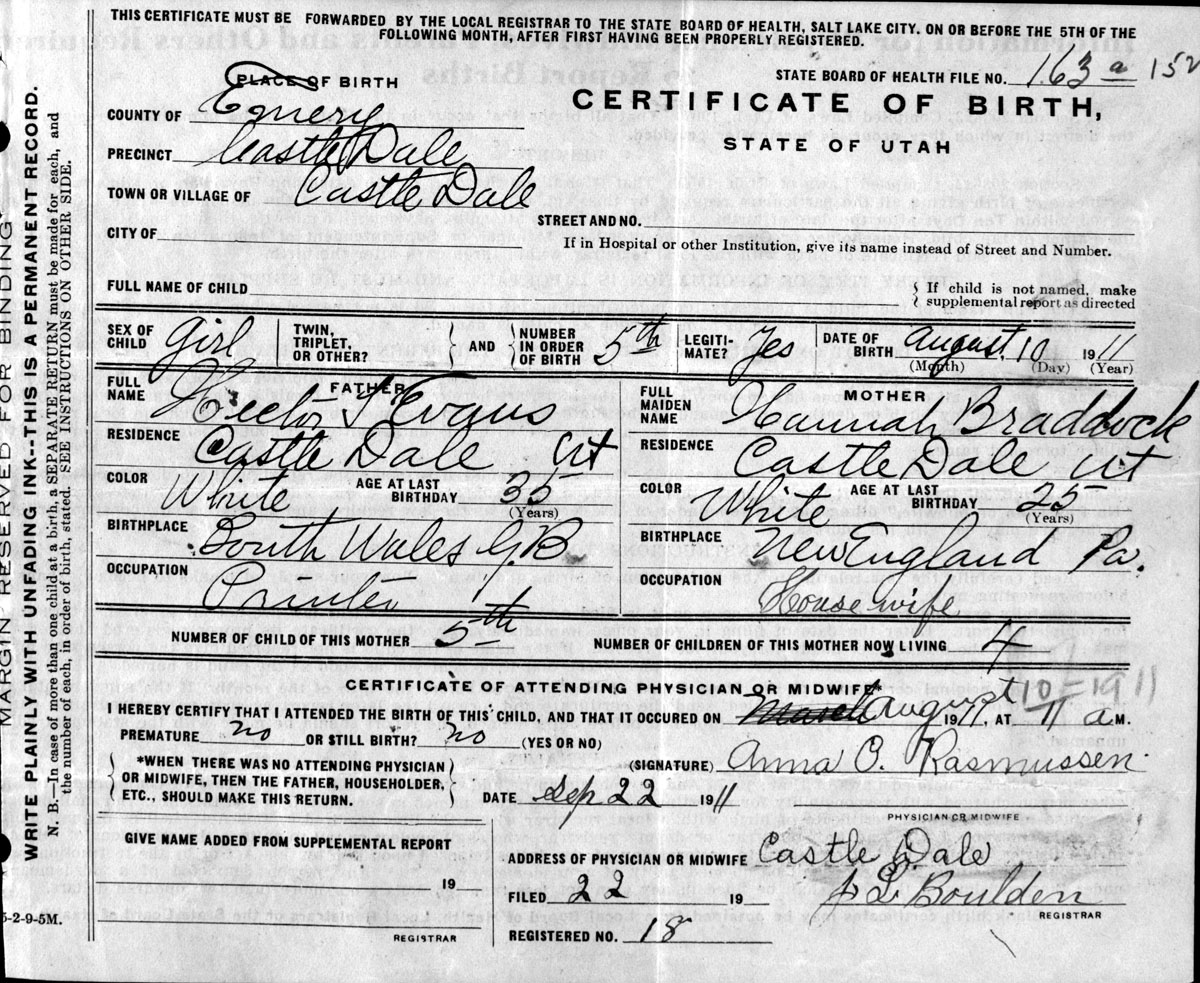 THIS CERTIFICATE MUST BE FORWARDED BY THE LOCAL REGISTRAR TO THE STATE BOARD OF HEALTH, SALT LAKE CITY, ON OR BEFORE THE 5TH OF THE
FOLLOWING MONTH, AFTER FIRST HAVING BEEN PROPERLY REGISTERED.
PLACE OF BIRTH
STATE BOARD OF HEALTH FILE NO. 163 a 152
COUNTY OF Emery
CERTIFICATE OF BIRTH,
PRECINCT Castle Dale
STATE OF UTAH
TOWN OR VILLAGE OF Castle Dale
STREET AND NO.
CITY OF
If in Hospital or other Institution, give its name instead of Street and Number.
FULL NAME OF CHILD
{ If child is not named, make
supplemental report as directed
SEX OF CHILD Girl TWIN, TRIPLET, OR OTHER? AND NUMBER IN ORDER OF BIRTH 5th LEGITIMATE? Yes DATE OF BIRTH August 10 1911
(Month) (Day) (Year)
FATHER
FULL NAME Hector T Evans
RESIDENCE Castle Dale Ut
COLOR White AGE AT LAST BIRTHDAY 35
(Years)
BIRTHPLACE South Wales G.B
OCCUPATION Printer
MOTHER
FULL MAIDEN NAME Hannah Braddock
RESIDENCE Castle Dale Ut
COLOR White AGE AT LAST BIRTHDAY 25
(Years)
BIRTHPLACE New England Pa.
OCCUPATION House wife
NUMBER OF CHILD OF THIS MOTHER 5th NUMBER OF CHILDREN OF THIS MOTHER NOW LIVING 4
CERTIFICATE OF ATTENDING PHYSICIAN OR MIDWIFE*
I HEREBY CERTIFY THAT I ATTENDED THE BIRTH OF THIS CHILD, AND THAT IT OCCURED ON March August 10-1911 1911, AT 11 a M.
PREMATURE no OR STILL BIRTH? no (YES OR NO)
(SIGNATURE) Anna O. Rasmussen
{ *WHEN THERE WAS NO ATTENDING PHYSICIAN
OR MIDWIFE, THEN THE FATHER, HOUSEHOLDER,
ETC., SHOULD MAKE THIS RETURN. }
DATE Sep 22 1911
PHYSICIAN OR MIDWIFE
GIVE NAME ADDED FROM SUPPLEMENTAL REPORT
19
REGISTRAR
ADDRESS OF PHYSICIAN OR MIDWIFE Castle Dale
FILED 22 19 Boulden
REGISTRAR
REGISTERED NO. 18
MARGIN RESERVED FOR BINDING
WRITE PLAINLY WITH UNFADING INK--THIS IS A PERMANENT RECORD.
N. B.—In case of more than one child at a birth, a SEPARATE RETURN must be made for each, and
the number of each, in order of birth, stated. SEE INSTRUCTIONS ON OTHER SIDE.
5-2-9-5M.